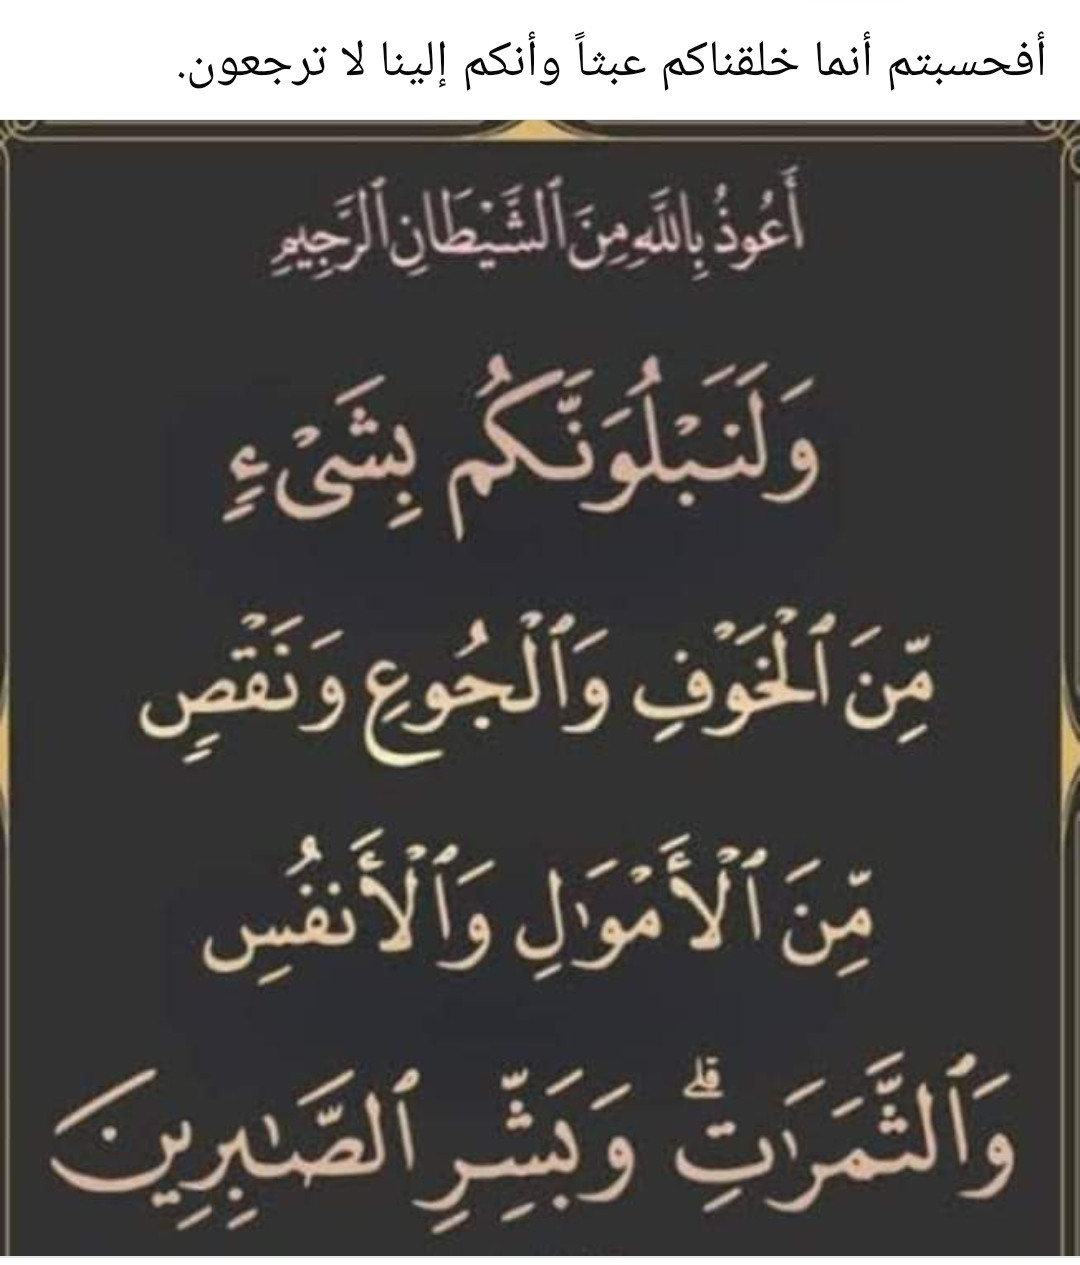 أفحسبتم أنما خلقناكم عبثاً وأنكم إلينا لا ترجعون.
أَعُوذُ بِاللَّهِ مِنَ ٱلشَّيْطَانِ ٱلرَّجِيمِ
وَلَنَبْلُوَنَّكُم بِشَىْءٍ
مِّنَ ٱلْخَوْفِ وَٱلْجُوعِ وَنَقْصٍ
مِّنَ ٱلْأَمْوَٰلِ وَٱلْأَنفُسِ
وَٱلثَّمَرَٰتِ ۗ وَبَشِّرِ ٱلصَّـٰبِرِينَ